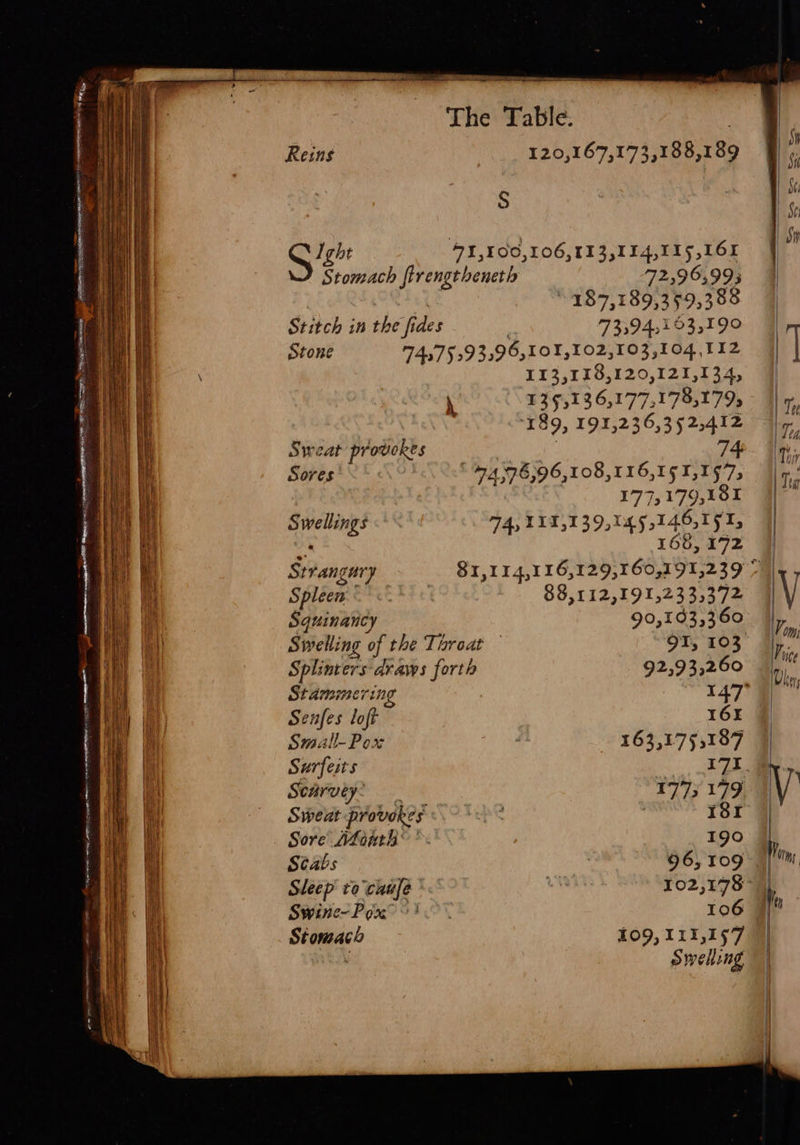 The Table.
Reins 120,167,173,188,189
S
SIght 71,100,106,113,114,115,161
Stomach ſtrengtheneth 72,96,99,
187,189,359,388
Stitch in the ſides 73,94,103,190
Stone 74,75,93,96,101,102,103,104,112
113,118,120,121,134,
135,136,177,178,179,
189, 191,236,352,412
Sweat provokes 74
Sores 74,76,96,108,116,151,157,
177,179,181
Swellings 74,111,139,145,146,151,
168, 172
Strangury 81,114,116,129,160,191,239
Spleen 88,112,191,233,372
Squinancy 90,103,360
Swelling of the Throat 91, 103
Splinters draws forth 92,93,260
Stammering 147
Senſes loſt 161
Small-Pox 163,175,187
Surfeits 171
Scurvey 177, 179
Sweat provokes 181
Sore Mouth 190
Scabs 96, 109
Sleep to cauſe 102,178
Swine-Pox 106
Stomach 109,111,157
Swelling